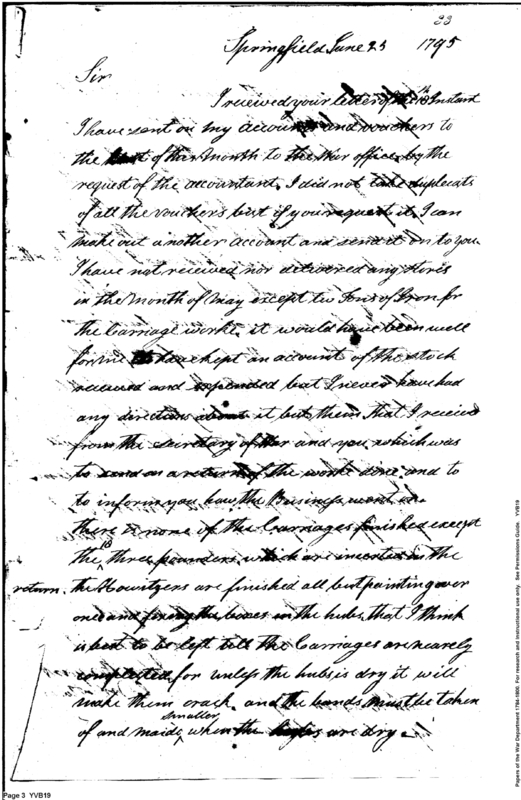 22
Springfield June 23 1795
Sir
I received your letter of the 18th Instant
I have sent on my accounts and vouchers to
the last of this Month to the War office by the
request of the accountant, I did not take duplicats
of all the vouchers but if you request it I can
make out another account and send it on to you
I have not received nor delivered any stores
in the month of May except two Tons of Iron for
the Carriage works. it would have been well
for me to have kept an account of the stock
received and expended but I never have had
any directions about it but them that I received
from the secretary of War and you which was
to send on a return of the work done and to
to inform you how the Business went on
there is none of the Carriages finished except
the 18 three pounders which are inserted in the
return. the Howitzers are finished all but painting over
once and fixing the boxes in the hubs, that I think
is best to be left till the Carriages are nearely
completed for unless the hubs is dry it will
make them crack and the bands must be taken
of and maide smaller when the are dry.
Page 3 YVB19
Papers of the War Department 1784-1800. For research and instructional use only. See Permissions Guide. YVB19